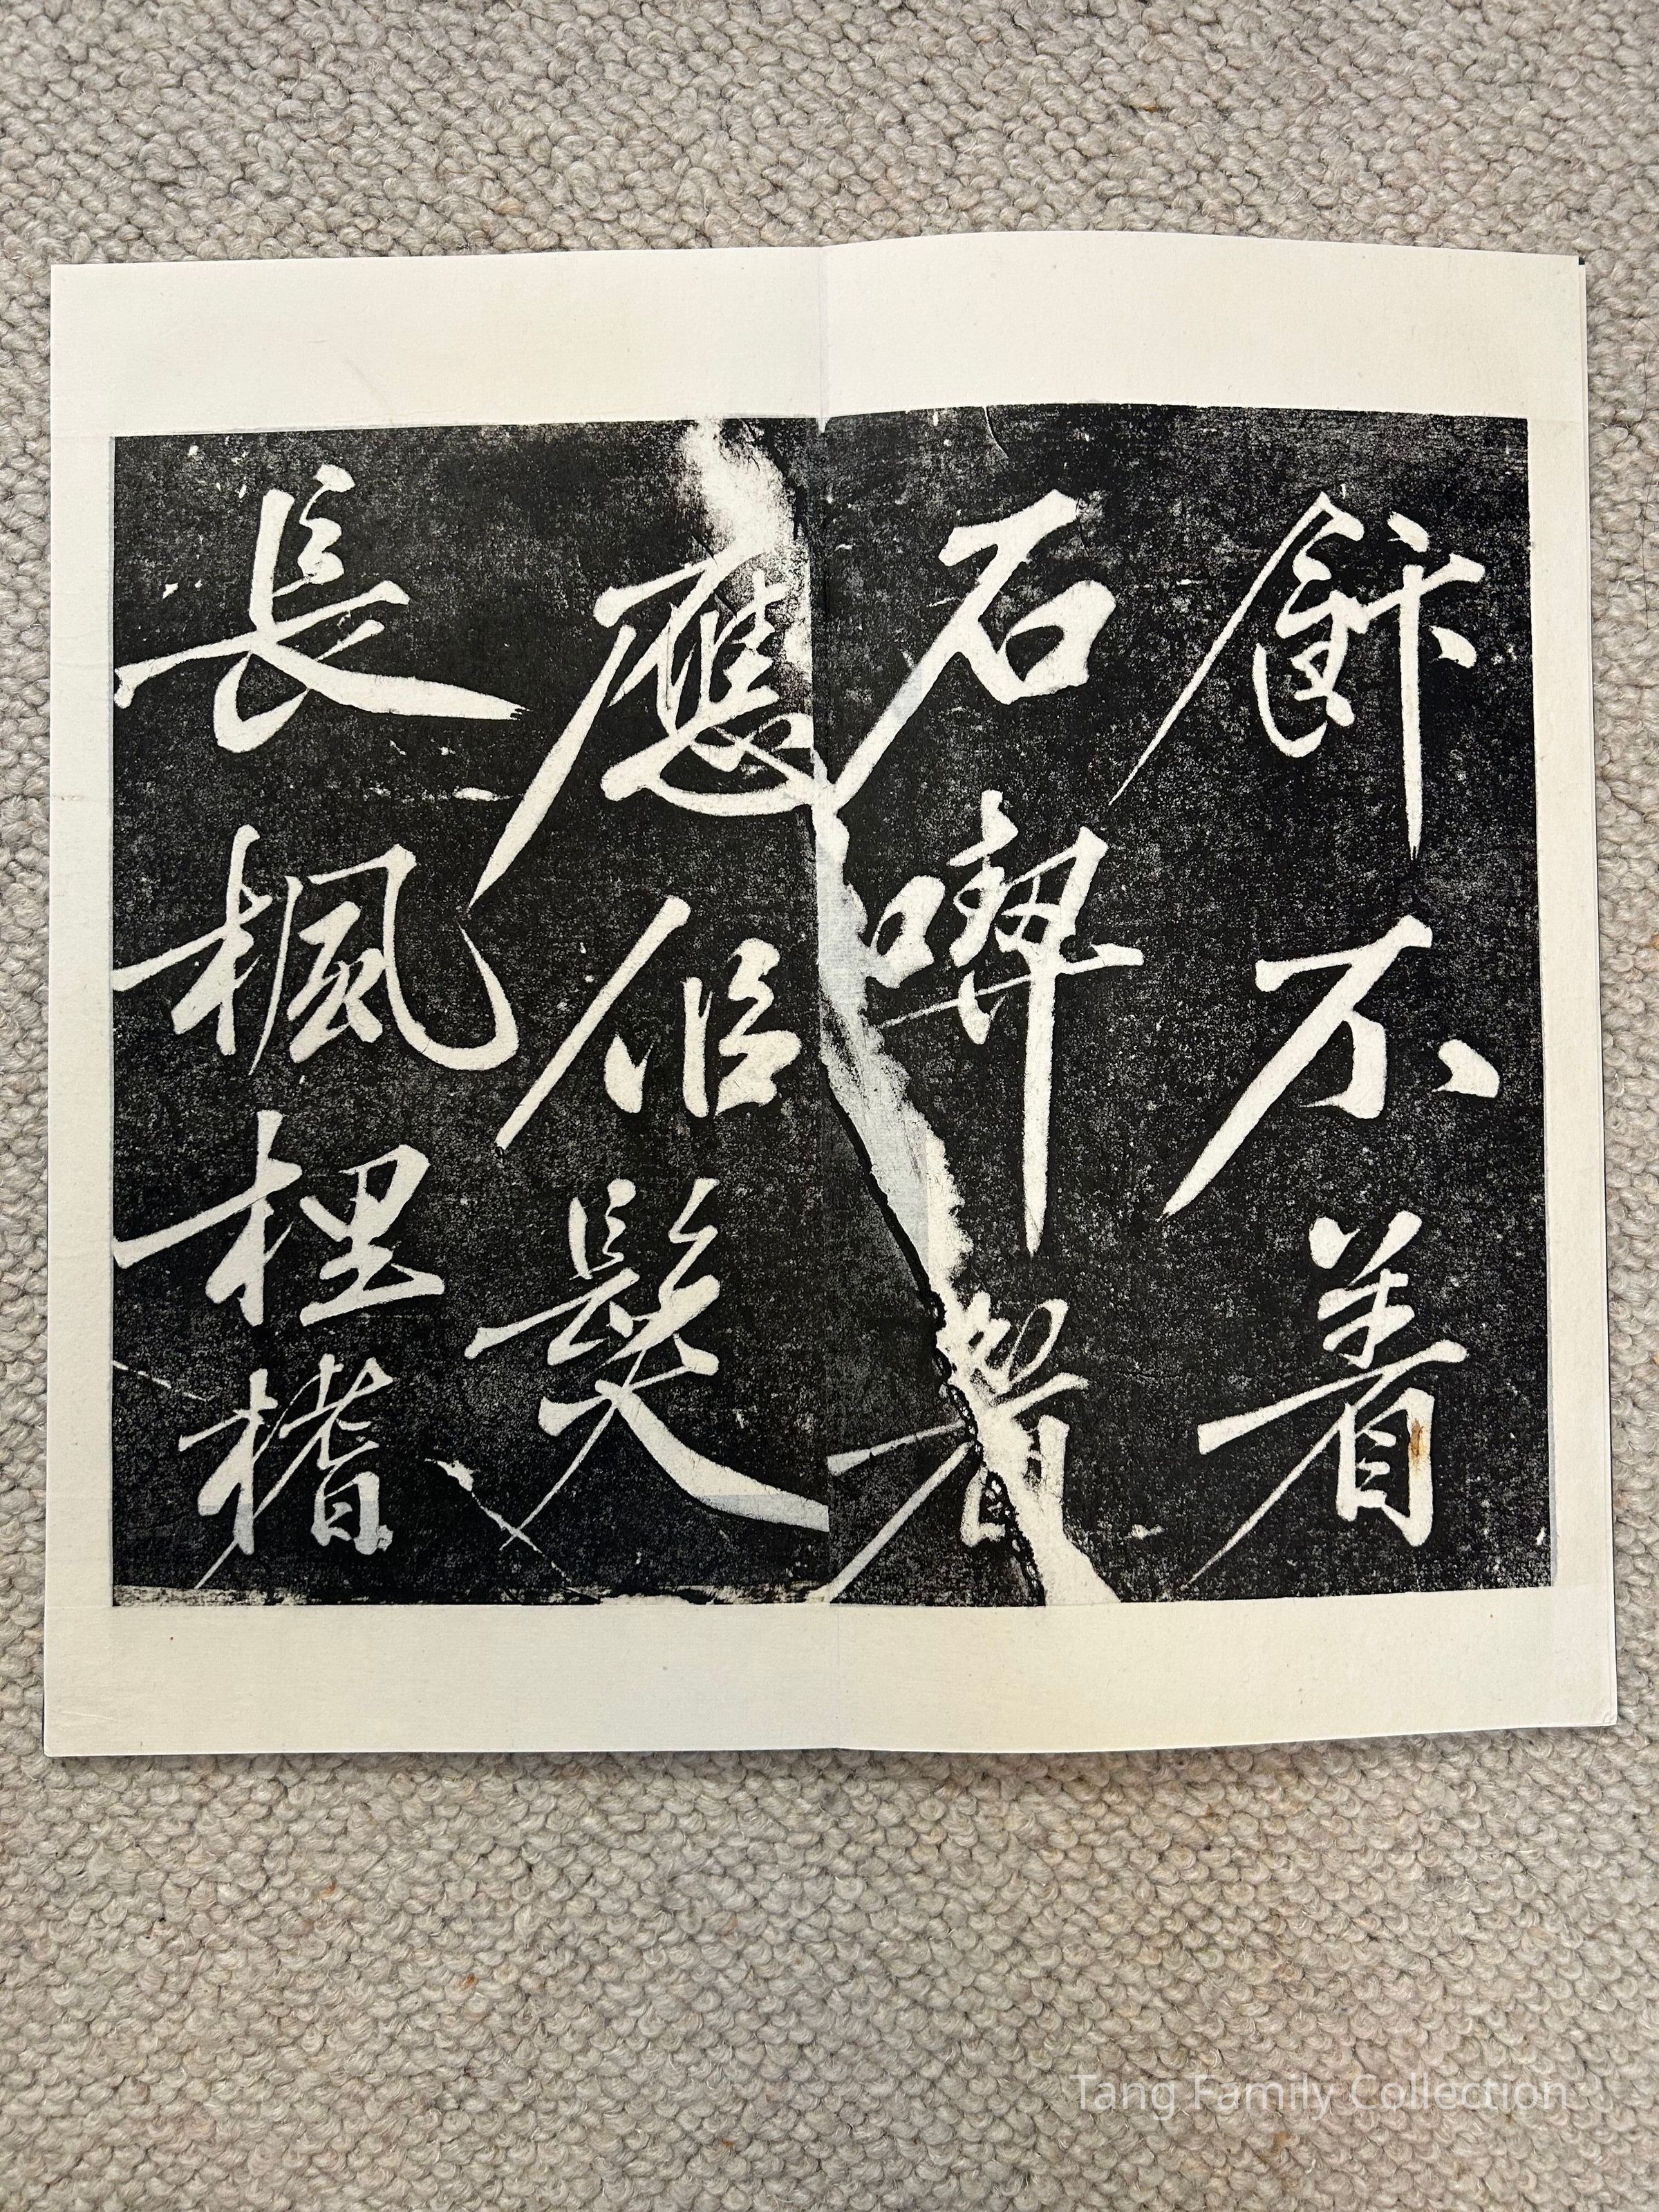 飰不着
石
應髮
長楓梩楮
Tang Family Collection